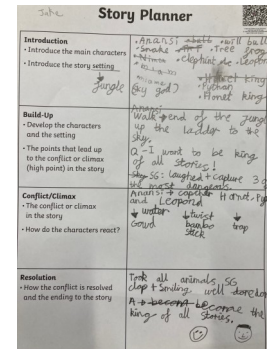 Jake
Story Planner
Introduction
• Introduce the main characters
• Introduce the story setting
Jungle
• Anansi
• will
• Snake
• Tree
• elephant
• Leopard
(sky god)
• Hornet king
• Python
• Hornet king
Build-Up
• Develop the characters and the setting
• The points that lead up to the conflict or climax (high point) in the story
Anansi
Walk → end of the jungle
up the ladder to the
sky.
Q - I want to be king
of all stories!
SG: laughed + capture 3 of
the most dangerous.
Conflict/Climax
• The conflict or climax in the story
• How do the characters react?
Anansi → capture Hornet, Py
and Leopard
↓ water ↓ twist ↓
Gourd bamboo trap
stick
Resolution
• How the conflict is resolved and the ending to the story
Took all animals, SG
clap + smiling well done
A become the
king of all stories.